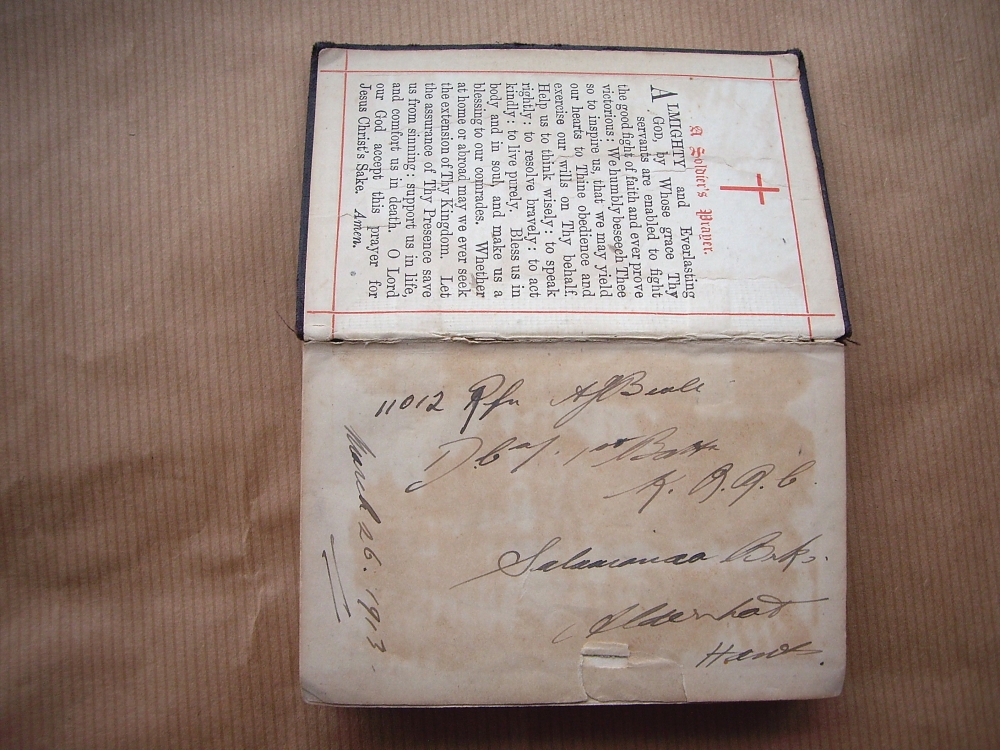 A Soldier's Prayer.
ALMIGHTY and Everlasting
GOD, by Whose grace Thy
servants are enabled to fight
the good fight of faith and ever prove
victorious: We humbly beseech Thee
so to inspire us, that we may yield
our hearts to Thine obedience and
exercise our wills on Thy behalf.
Help us to think wisely: to speak
rightly: to resolve bravely: to act
kindly: to live purely. Bless us in
body and in soul, and make us a
blessing to our comrades. Whether
at home or abroad may we ever seek
the extension of Thy Kingdom. Let
the assurance of Thy Presence save
us from sinning: support us in life,
and comfort us in death. O Lord
our God accept this prayer for
Jesus Christ's Sake. Amen.
11012 Rfn AJ Beale
D Coy. 1st Battn
K. R. R. C.
Salamanca Brks.
Aldershot
Hants.
March 26. 1913.